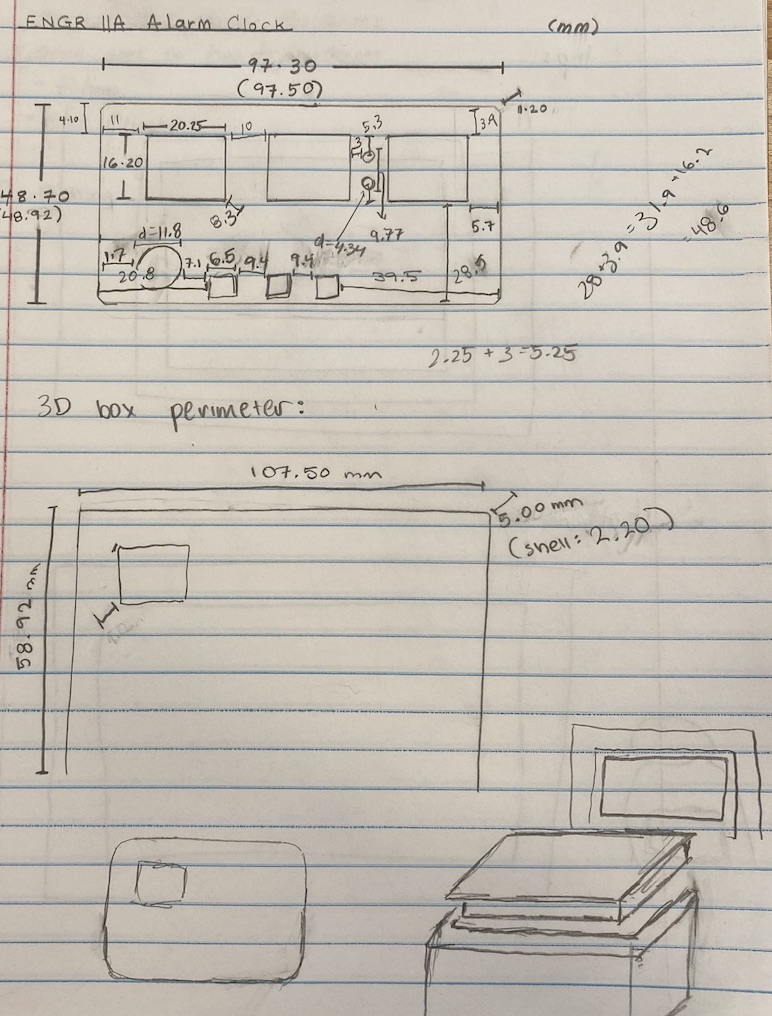 ENGR 11A Alarm Clock (mm)
97.30
(97.50)
1.20
4.10
11
20.25
10
5.3
3.9
3
16.20
48.70
(48.92)
8.3
5.7
d=11.8
d=4.34
9.77
1.7
7.1
6.5
9.4
9.4
20.8
39.5
28.5
28+3.9 = 31.9+16.2
= 48.6
2.25 + 3 = 5.25
3D box perimeter:
107.50 mm
5.00 mm
(shell: 2.20)
58.92 mm